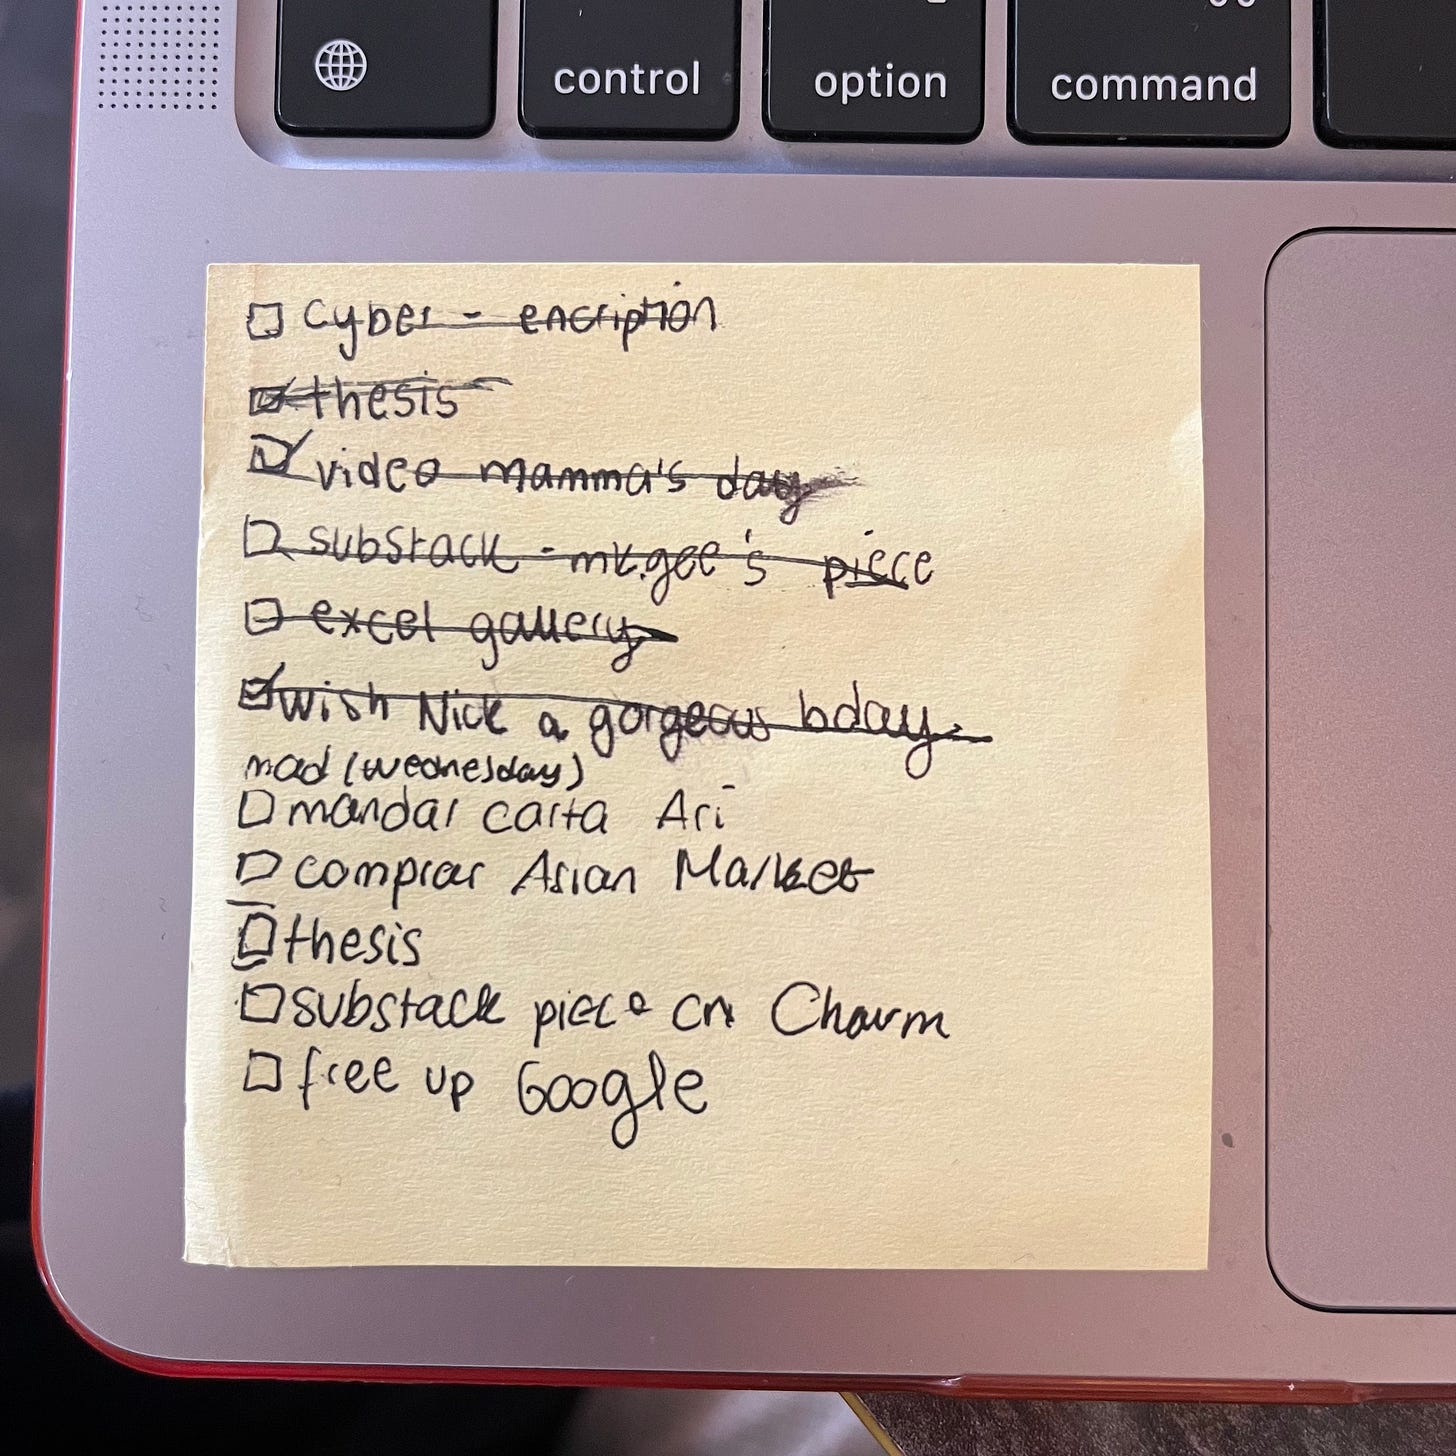 control option command
cyber - encription
thesis
video mamma's day
substack - mk.gee's piece
excel gallery
wish Nick a gorgeous bday
mad (wednesday)
mandar carta Ari
comprar Asian Market
thesis
substack piece on Charm
free up Google